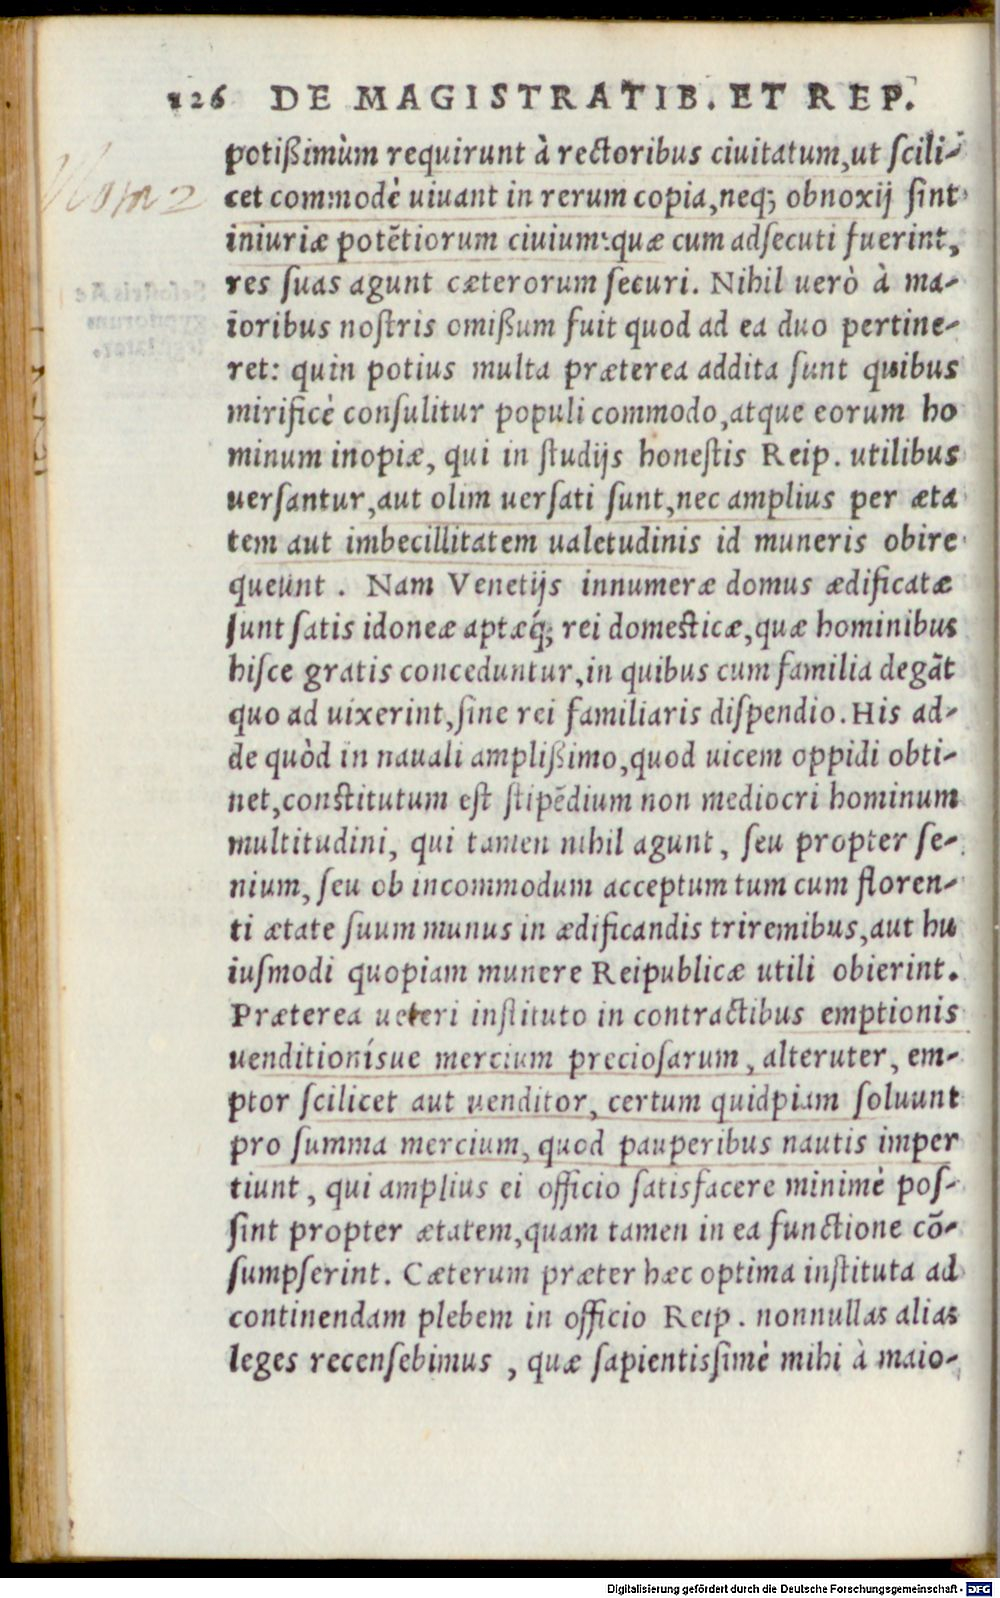 126 DE MAGISTRATIB. ET REP.
potißimùm requirunt à rectoribus ciuitatum,ut ſcili-
cet commodè uiuant in rerum copia,neq; obnoxij ſint
iniuriæ potẽtiorum ciuium:quæ cum adſecuti fuerint,
res ſuas agunt cæterorum ſecuri. Nihil uerò à ma-
ioribus noſtris omißum fuit quod ad ea duo pertine-
ret: quin potius multa præterea addita ſunt quibus
mirificè conſulitur populi commodo,atque eorum ho
minum inopiæ, qui in ſtudijs honeſtis Reip. utilibus
uerſantur,aut olim uerſati ſunt,nec amplius per æta
tem aut imbecillitatem ualetudinis id muneris obire
queunt . Nam Venetijs innumeræ domus ædificatæ
ſunt ſatis idoneæ aptæq́; rei domeſticæ,quæ hominibus
hiſce gratis conceduntur,in quibus cum familia degãt
quo ad uixerint,ſine rei familiaris diſpendio. His ad-
de quòd in nauali amplißimo,quod uicem oppidi obti-
net,conſtitutum eſt ſtipẽdium non mediocri hominum
multitudini, qui tamen nihil agunt, ſeu propter ſe-
nium, ſeu ob incommodum acceptum tum cum floren-
ti ætate ſuum munus in ædificandis triremibus,aut hu
iuſmodi quopiam munere Reipublicæ utili obierint.
Præterea ueteri inſtituto in contractibus emptionis
uenditionísue mercium precioſarum, alteruter, em-
ptor ſcilicet aut uenditor, certum quidpiam ſoluunt
pro ſumma mercium, quod pauperibus nautis imper
tiunt, qui amplius ei officio ſatisfacere minimè poſ-
ſint propter ætatem,quam tamen in ea functione cõ-
ſumpſerint. Cæterum præter hæc optima inſtituta ad
continendam plebem in officio Reip. nonnullas alias
leges recenſebimus, quæ ſapientisſimè mihi à maio-
Digitalisierung gefördert durch die Deutsche Forschungsgemeinschaft - DFG